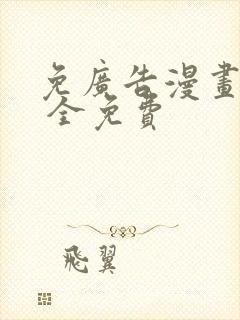 免廣告漫畫
全免費
飛翼